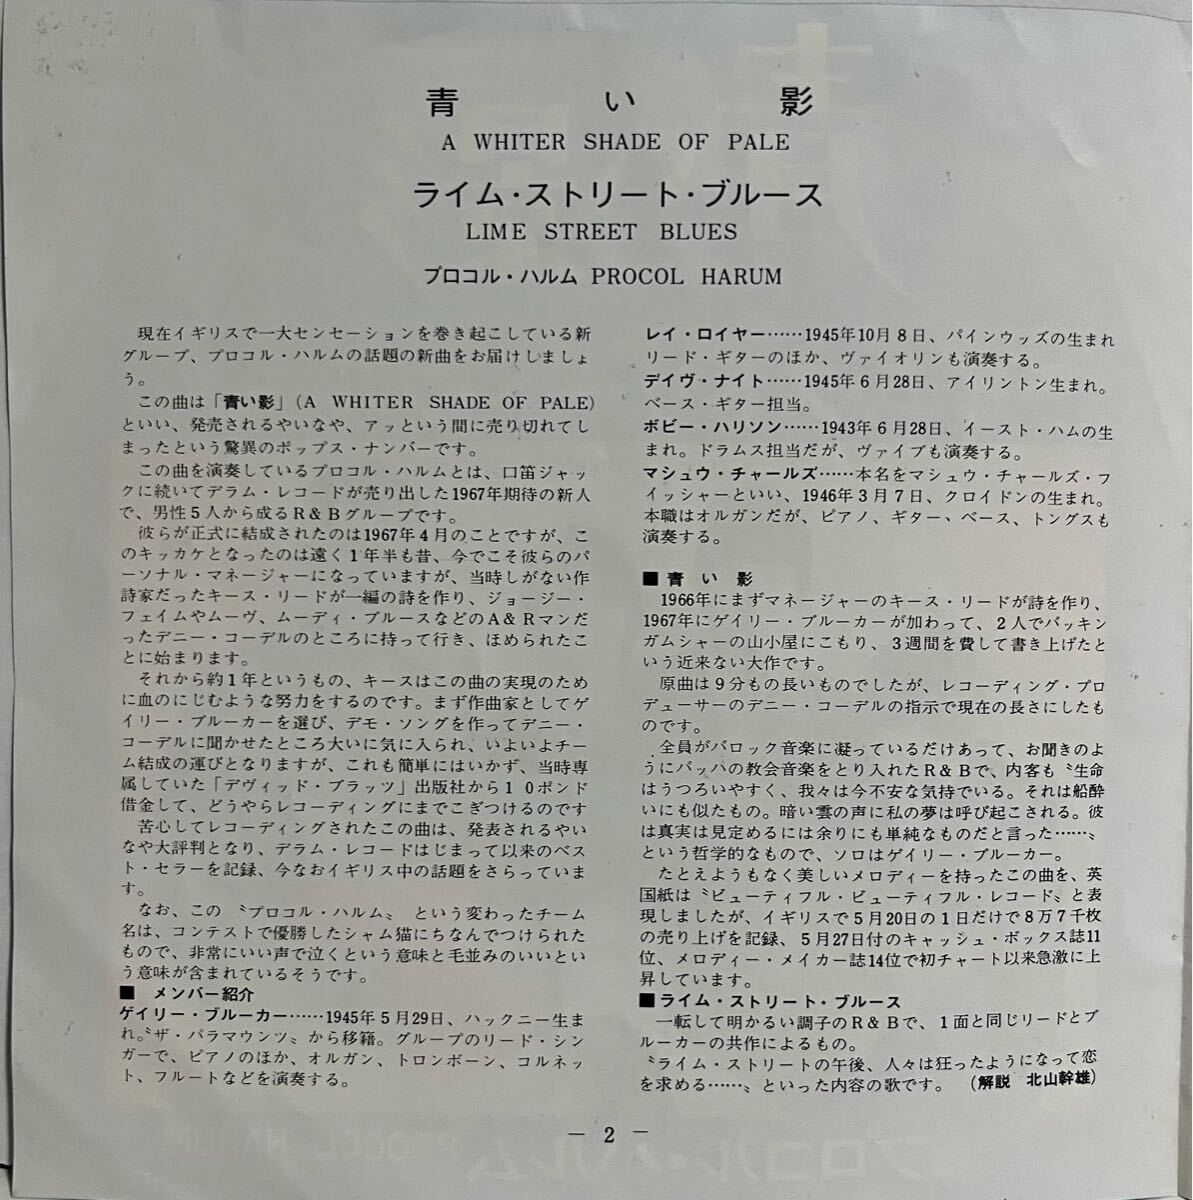 青い影
A WHITER SHADE OF PALE
ライム・ストリート・ブルース
LIME STREET BLUES
プロコル・ハルム PROCOL HARUM
現在イギリスで一大センセーションを巻き起こしている新
グループ、プロコル・ハルムの話題の新曲をお届けしましょ
う。
この曲は「青い影」(A WHITER SHADE OF PALE)
といい、発売されるやいなや、アッという間に売り切れてし
まったという驚異のポップス・ナンバーです。
この曲を演奏しているプロコル・ハルムとは、口笛ジャッ
クに続いてデラム・レコードが売り出した1967年期待の新人
で、男性5人から成るR&Bグループです。
彼らが正式に結成されたのは1967年4月のことですが、こ
のキッカケとなったのは遠く1年半も昔、今でこそ彼らのパ
ーソナル・マネージャーになっていますが、当時しがない作
詩家だったキース・リードが一編の詩を作り、ジョージー・
フェイムやムーヴ、ムーディ・ブルースなどのA&Rマンだ
ったデニー・コーデルのところに持って行き、ほめられたこ
とに始まります。
それから約1年というもの、キースはこの曲の実現のため
に血のにじむような努力をするのです。まず作曲家としてゲ
イリー・ブルーカーを選び、デモ・ソングを作ってデニー・
コーデルに聞かせたところ大いに気に入られ、いよいよチー
ム結成の運びとなりますが、これも簡単にはいかず、当時専
属していた「デヴィッド・プラッツ」出版社から10ポンド
借金して、どうやらレコーディングにまでこぎつけるのです
苦心してレコーディングされたこの曲は、発表されるやい
なや大評判となり、デラム・レコードはじまって以来のベス
ト・セラーを記録、今なおイギリス中の話題をさらっていま
す。
なお、この〝プロコル・ハルム〟という変わったチーム
名は、コンテストで優勝したシャム猫にちなんでつけられた
もので、非常にいい声で泣くという意味と毛並みのいいとい
う意味が含まれているそうです。
■ メンバー紹介
ゲイリー・ブルーカー……1945年5月29日、ハックニー生ま
れ。〝ザ・パラマウンツ〟から移籍。グループのリード・シン
ガーで、ピアノのほか、オルガン、トロンボーン、コルネッ
ト、フルートなどを演奏する。
レイ・ロイヤー……1945年10月8日、パインウッズの生まれ
リード・ギターのほか、ヴァイオリンも演奏する。
デイヴ・ナイト……1945年6月28日、アイリントン生まれ。
ベース・ギター担当。
ボビー・ハリソン……1943年6月28日、イースト・ハムの生
まれ。ドラムス担当だが、ヴァイブも演奏する。
マシュウ・チャールズ……本名をマシュウ・チャールズ・フ
ィッシャーといい、1946年3月7日、クロイドンの生まれ。
本職はオルガンだが、ピアノ、ギター、ベース、トングスも
演奏する。
■青い影
1966年にまずマネージャーのキース・リードが詩を作り、
1967年にゲイリー・ブルーカーが加わって、2人でバッキン
ガムシャーの山小屋にこもり、3週間を費して書き上げたと
いう近来ない大作です。
原曲は9分もの長いものでしたが、レコーディング・プロ
デューサーのデニー・コーデルの指示で現在の長さにしたも
のです。
全員がバロック音楽に凝っているだけあって、お聞きのよ
うにバッハの教会音楽をとり入れたR&Bで、内客も〝生命
はうつろいやすく、我々は今不安な気持でいる。それは船酔
いにも似たもの。暗い雲の声に私の夢は呼び起こされる。彼
は真実は見定めるには余りにも単純なものだと言った……〟
という哲学的なもので、ソロはゲイリー・ブルーカー。
たとえようもなく美しいメロディーを持ったこの曲を、英
国紙は〝ビューティフル・ビューティフル・レコード〟と表
現しましたが、イギリスで5月20日の1日だけで8万7千枚
の売り上げを記録、5月27日付のキャッシュ・ボックス誌11
位、メロディー・メイカー誌14位で初チャート以来急激に上
昇しています。
■ライム・ストリート・ブルース
一転して明かるい調子のR&Bで、1面と同じリードとブ
ルーカーの共作によるもの。
〝ライム・ストリートの午後、人々は狂ったようになって恋
を求める……〟といった内容の歌です。 (解説 北山幹雄)
— 2 —
プロコル・ハルム PROCOL HARUM